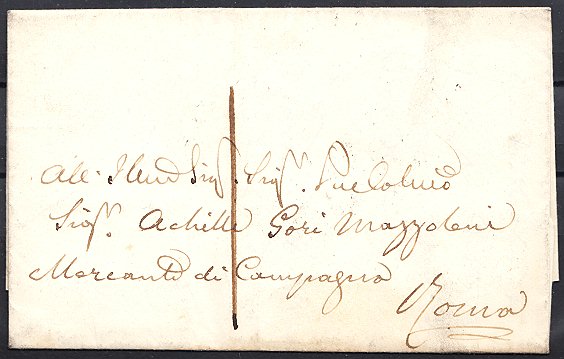 All. Illmo Sigr. Sigr. Pne Colmo
Sigr. Achille Gori Mazzoleni
Mercante di Campagna
Roma